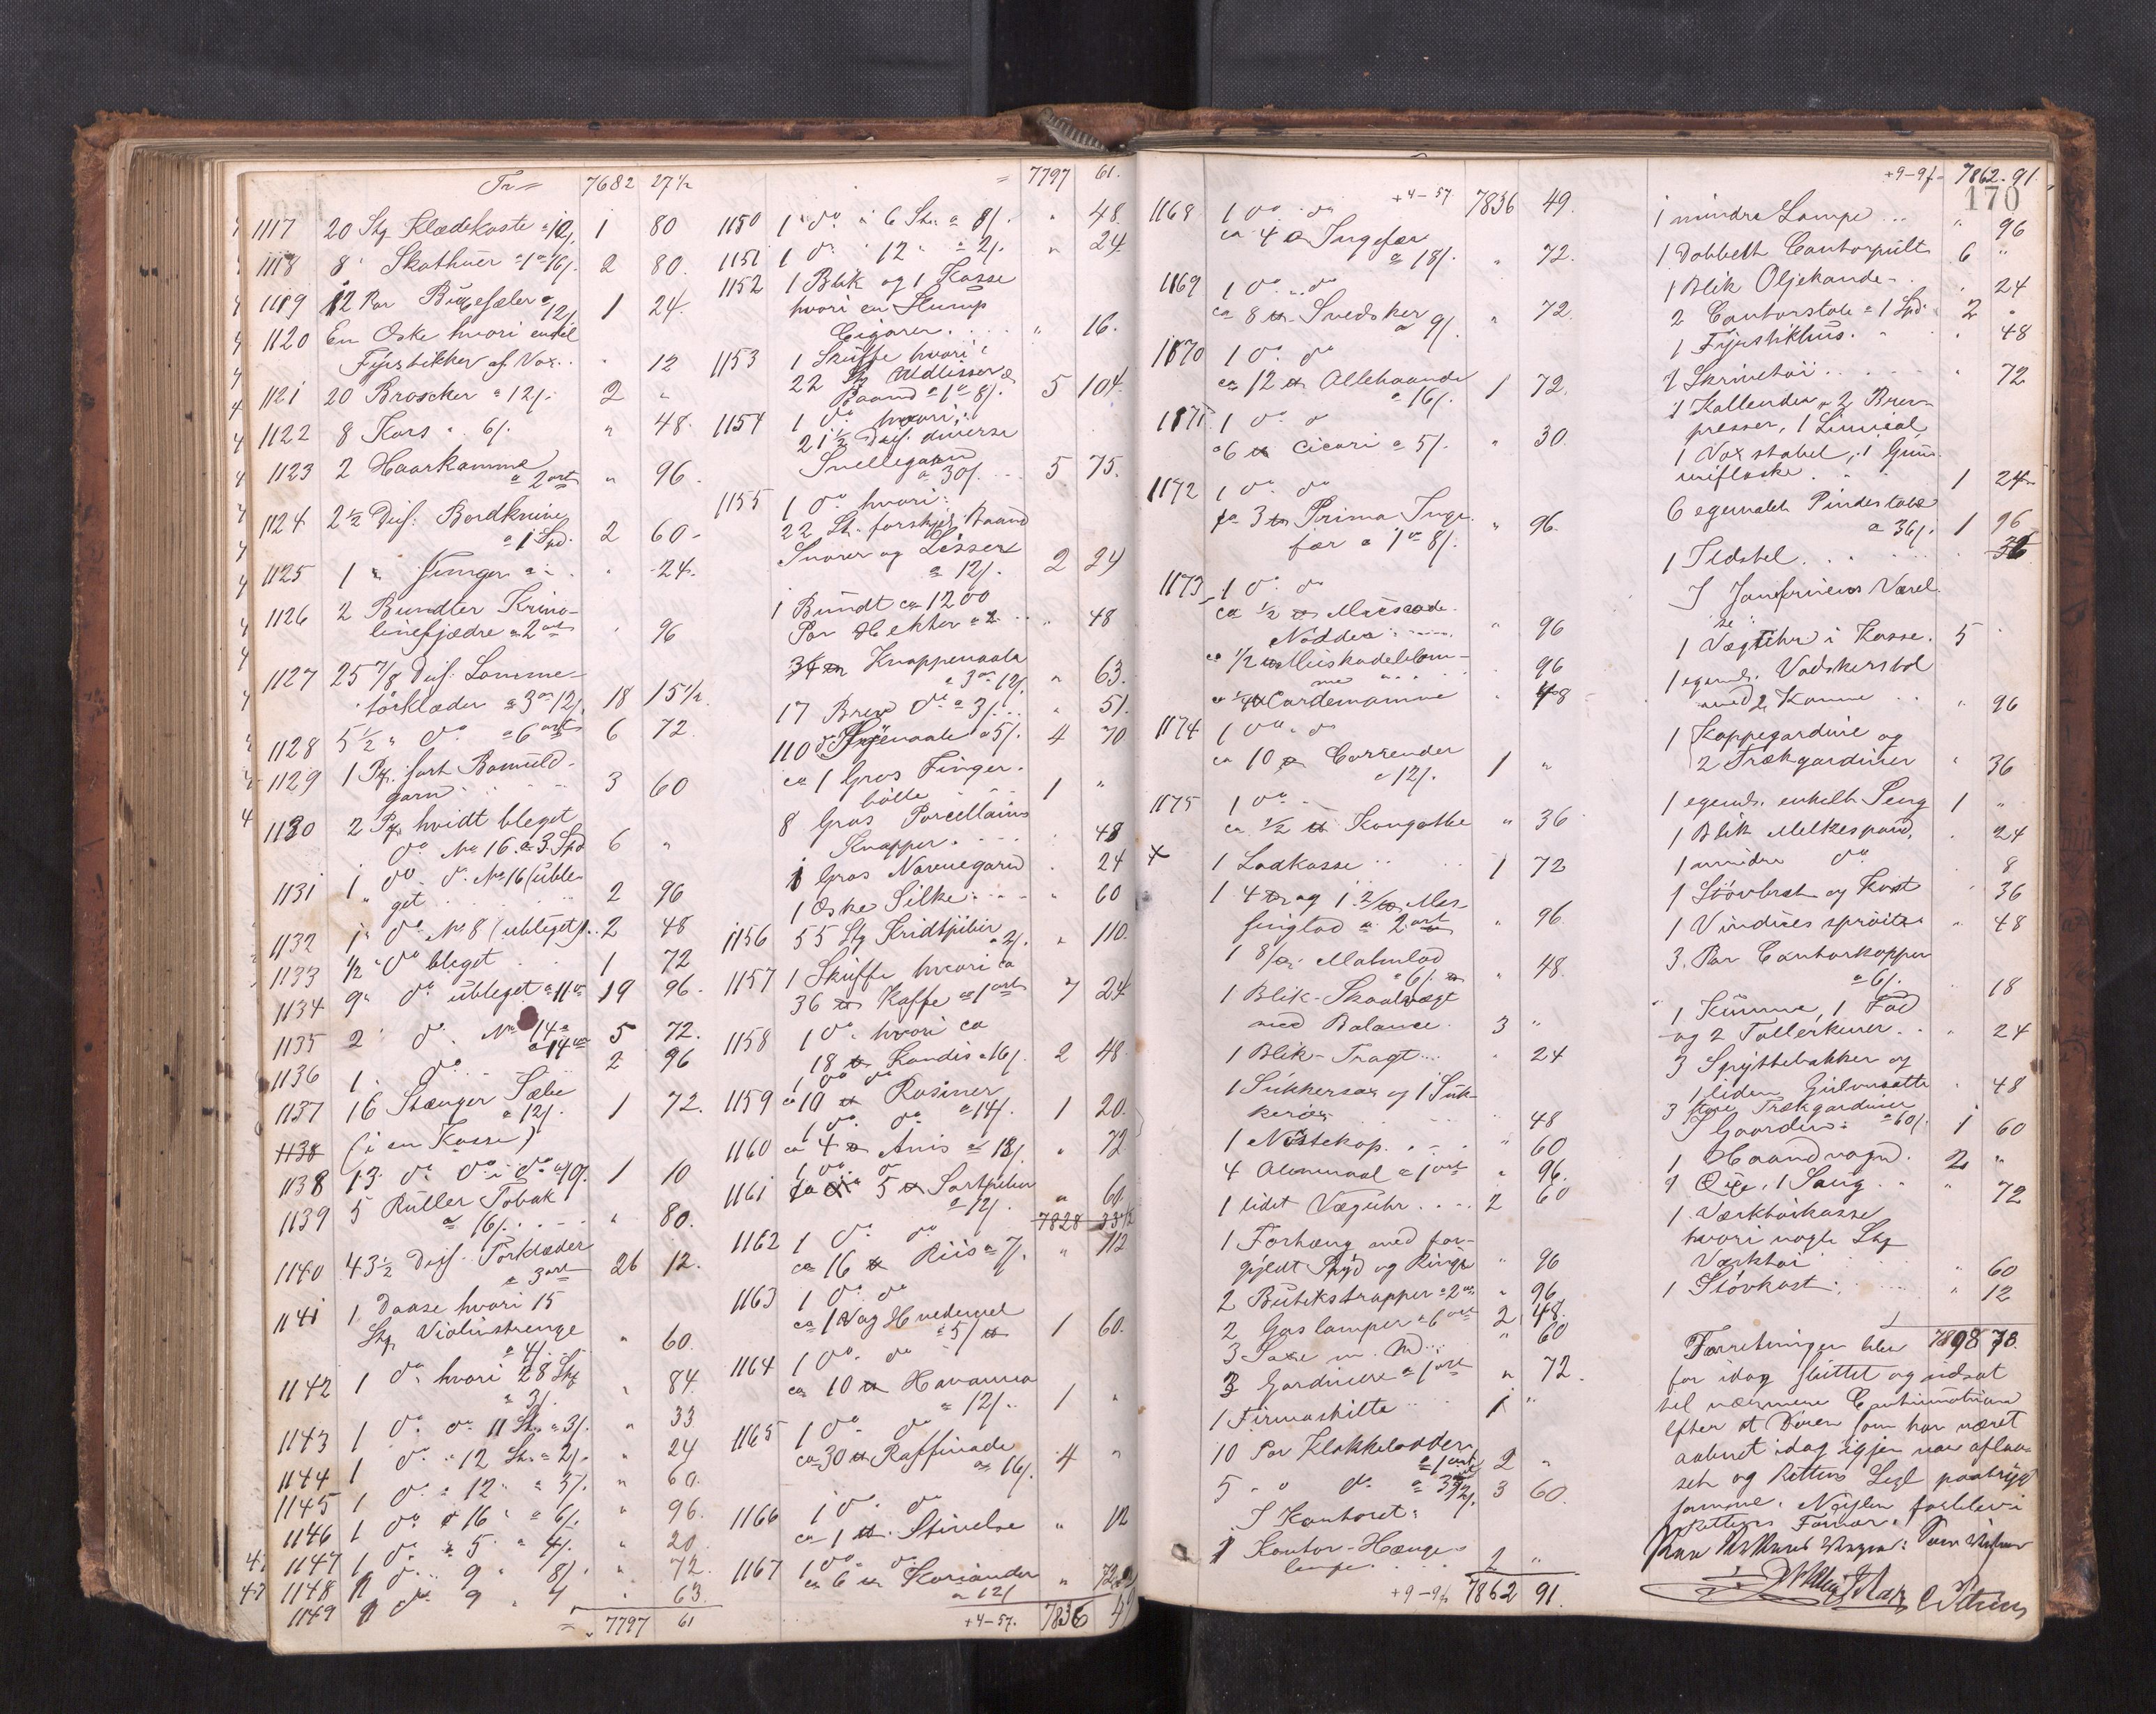 Tr = 7682 27 1/2
1117 20 Stg Klædekoste a 12/. 1 80
1118 8 " Skothuer a 1 ort 16/. 2 80.
1119 12 Par Buxeseler a 12/ 1 24.
1120 En Æske hvori endel
Fyrstikker af Vox. . " 12
1121 20 Broscker a 12/. 2 "
1122 8 Kors a 6/. " 48.
1123 2 Haarkamme a 2 ort " 96.
1124 2 1/2 Dus: Bordknive
a 1 Spd. 2 60.
1125 1 " " " 24.
1126 2 Bundter Krino-
linefjædre a 2 ort " 96
1127 25 7/8 Dus: Lomme-
törklæder a 3 ort 12/. 18 15 1/2
1128 5 1/2 " do a 6 ort 6 72.
1129 1 Pk. sort Bomuld-
garn . . . 3 60
1130 2 Pk. hvidt bleget
do No 16 a 3 Spd 6 "
1131 1 " do do No 16 (uble-
get . . . 2 96
1132 1 " do No 8 (ubleget). 2 48
1133 1/2 " do bleget . . 1 72
1134 9 " do ubleget a 11 ort 19 96.
1135 2 " do No 14 a
a 14 ort 5 72.
1136 1 " do . . . 2 96
1137 16 Stænger Sæbe
a 12/. 1 72.
1138 (i en Kasse)
1138 13 do do i do a 10/. 1 10
1139 5 Ruller Tobak
a 16/. . . " 80.
1140 43 1/2 Dus. Törklæder
a 3 ort 26 12.
1141 1 Daase hvori 15
Stg Violinstrenge
a 4/. " 60.
1142 1 do hvori 28 Stg
a 3/. " 84.
1143 1 do do 11 St. a 3/. " 33
1144 1 do " 12 St. a 2/. " 24
1145 1 do " 12 " a 5/. " 60.
1146 1 do " 16 " a 6/. " 96.
1147 1 do " 5 " a 4/. " 20
1148 1 do " 9 " 8/. " 72.
1149 1 do 9 " 7 " 63.
= 7797 61
= 7797 61.
1150 1 do a 6 St. a 8/. " 48.
1151 1 do " 12 " a 2/. " 24
1152 1 Blik og 1 Kasse
hvori en Slump
Cigarer. . . " 16.
1153 1 Skuffe hvori:
22 St Uldlisser &
Baand a 1 ort 8/. 5 104.
1154 1 do hvori:
21 1/2 Dus. diverse
Snellegarn
a 30/. 5 75.
1155 1 do hvori:
22 St. forskjel: Baand
Snorer og Lisser
a 12/. 2 24
1 Bundt ca 1200
Par Hekter a 2 . . " 48
Knappenaale
a 3 ort 12/. " 63.
17 Breve do a 3/. " 51.
110 do Synaale a 5/. 4 70
ca 1 Gros Finger-
bölle . . . 1 "
8 Gros Porcellains
Knapper. . . . 48
1 Gros Navnegarn . 24
1 Æske Silke. . . " 60
1156 55 Stg Kridtpiber a 2/. " 110.
1157 1 Skuffe hvori ca
36 ℔ Kaffe a 1 ort 7 24
1158 1 do hvori ca
18 ℔ Kandis a 16/. 2 48.
1159 1 do do
ca 10 ℔ Rosiner a 14/. 1 20.
1160 1 do do
ca 4 ℔ Anis a 18/. " 72
1161 1 do do
ca 5 ℔ Sortpeber
a 12/. " 60.
7828 33 1/2
1162 1 do do
ca 16 ℔ Riis a 7/. " 112
1163 1 do do
ca 1 Vog Hvedemel
a 5/ ℔ 1 60.
1164 1 do do
ca 10 ℔ Havanna
a 12/. 1 "
1165 1 do do
ca 30 ℔ Raffinade
a 16/. 4 "
1166 1 do do
ca 1 ℔ Stivelse " 12
1167 1 do do
ca 6 ℔ Koriander
a 12/ " 72
+4-57. 7836 49
+4-57 7836 49.
1168 1 do do
ca 4 ℔ Ingefær
a 18/. " 72.
1169 1 do do
ca 8 ℔ Svedsker
a 9/. " 72.
1170 1 do do
ca 12 ℔ Allehaande
a 16/. 1 72.
1171 1 do do
a 6 ℔ Cicori a 5/. " 30.
1172 1 do do
ca 3 ℔ Prima Inge-
fær a 1 ort 8/. " 96.
1173 1 do do
ca 1/2 ℔ Muscade-
Nödder . . . " 96
ca 1/2 ℔ Muskadeblom-
me . . . . 96
ca 1/4 ℔ Cardemomme " 48
1174 1 do do
ca 10 ℔ Corrender
a 12/. 1 "
1175 1 do
ca 1/2 ℔ Kongothe " 36
+ 1 Ladkasse . . . 1 72
1 4 ℔ og 1 2/℔ Mes-
singlod a 2 ort " 96.
1 8/℔ Malmlod
a 6/. ℔ " 48.
1 Blik-Skaalvægt
med Balance. 3 "
1 Blik-Tragt . . . 24
1 Sukkersax og 1 Suk-
keröx . . . 48
1 Næstekop. . . " 60
4 Alenmaal a 1 ort " 96.
1 lidet Væguhr . . . 2 60
1 Forhæng med for-
gyldt Spyd og Ringe " 96
2 Butikstrapper a 2 ort " 96
2 Gaslamper a 6 ort 2 48.
3 Saxe m. M. . . " 60
3 Gardinere a 1 ort " 72.
1 Firmaskilte . . 1 "
10 Par Klokkelodder
a 1 ort 2 "
5 " " do a 3 ort 12/. 3 60.
I Kontoret:
1 Kontor-Hænge-
lampe . . . 2 "
+9-9/. 7862 91.
+9-9/- 7862-91.
170
1 mindre Lampe . . . " 96
1 Dobbelt Contorpult 6 "
1 Blik Oljekande . . . 24
2 Contorstole a 1 Spd. 2 "
1 Fyrstikhus. . . . 48
1 Skrivetöi . . . . 72
1 Kallender, 2 Brev-
presser, 1 Linieal
1 Vox stabel, 1 Gum-
miflaske. . . 1 24
6 egemalte Pindestole
a 36/. 1 96
1 Ildstel. . . . 36
I Jomfruens Værel-
se:
1 Væguhr i Kasse. 5 "
1 egem. Vadskerstol
med 2 Kanne . . " 96
1 Kappegardine og
2 Trækgardiner " 36
1 egem. enkelt Seng 1 "
1 Blik Melkespand, . 24
1 mindre do . 8
1 Stövbret og Kost " 36
1 Vindues spröite " 48
3 Par Contorkopper
a 6/. . 18
1 Kumme, 1 Fad
og 2 Tallerkener. . " 24
3 Spyttebakker og
1 liden Gulvmatte " 48
3 store Trækgardiner a 60/. 1 60
I Gaarden:
1 Haandvogn. . 2 "
1 Öxe, 1 Saug . . " 72
1 Værktöikasse
hvori nogle Stg
Værktöi . . . " 60
1 Stövkost. . . . " 12
Forretningen blev 7898 78.
for idag sluttet og udsat
til nærmere Continuation
efter at Dören som har været
aabnet idag igjen var aflaa-
set og Rettens Segl paatrykt
samme. Nöglen forblev i
Rettens Forvar.